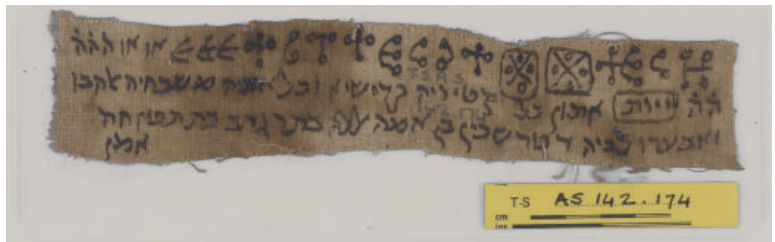 אה אה ההה
הה יייות אתון כל קטיריה קדישיא וכל אותיה משבחיה אקדו
ואבערו לביה דטרשכין בן אמה אללה בתר גרב בת תפאחה
אמן
T-S AS 142.174
cm
ins